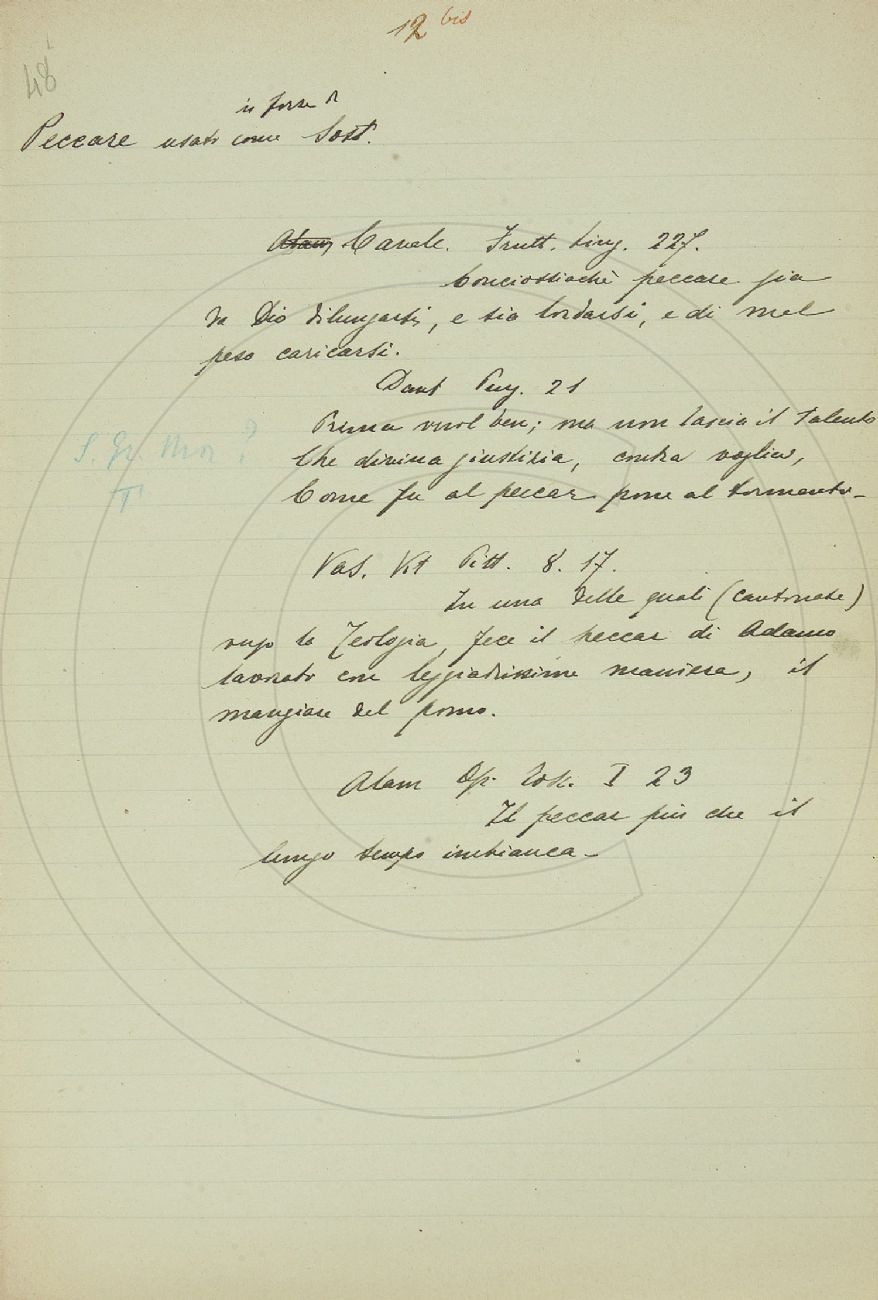 12 bis
48
in forza di
Peccare usato come Sost.
Alam Cavalc. Frutt. ling. 227.
Conciossiachè peccare sia
da Dio dilungarsi, e sia lordarsi, e di mal
peso caricarsi.
Dant Purg. 21
Prima vuol ben; ma non lascia il talento
Che divina giustizia, contra voglia,
S. Gr. Mor ?
Come fu al peccar pone al tormento.
T
Vas. Vit Pitt. 8. 17.
In una delle quali (cantonate)
la Teologia, fece il peccar di Adamo
lavorato con leggiadrissime maniera, il
mangiare del pomo.
Alam Op. Tosc. I 23
Il peccar più che il
lungo tempo imbianca.